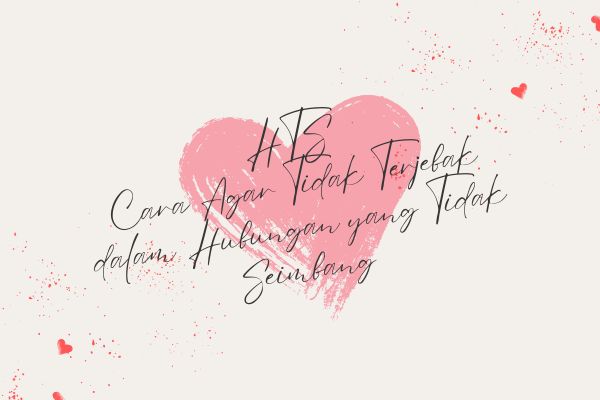 HTS
Cara Agar Tidak Terjebak
dalam Hubungan yang Tidak
Seimbang